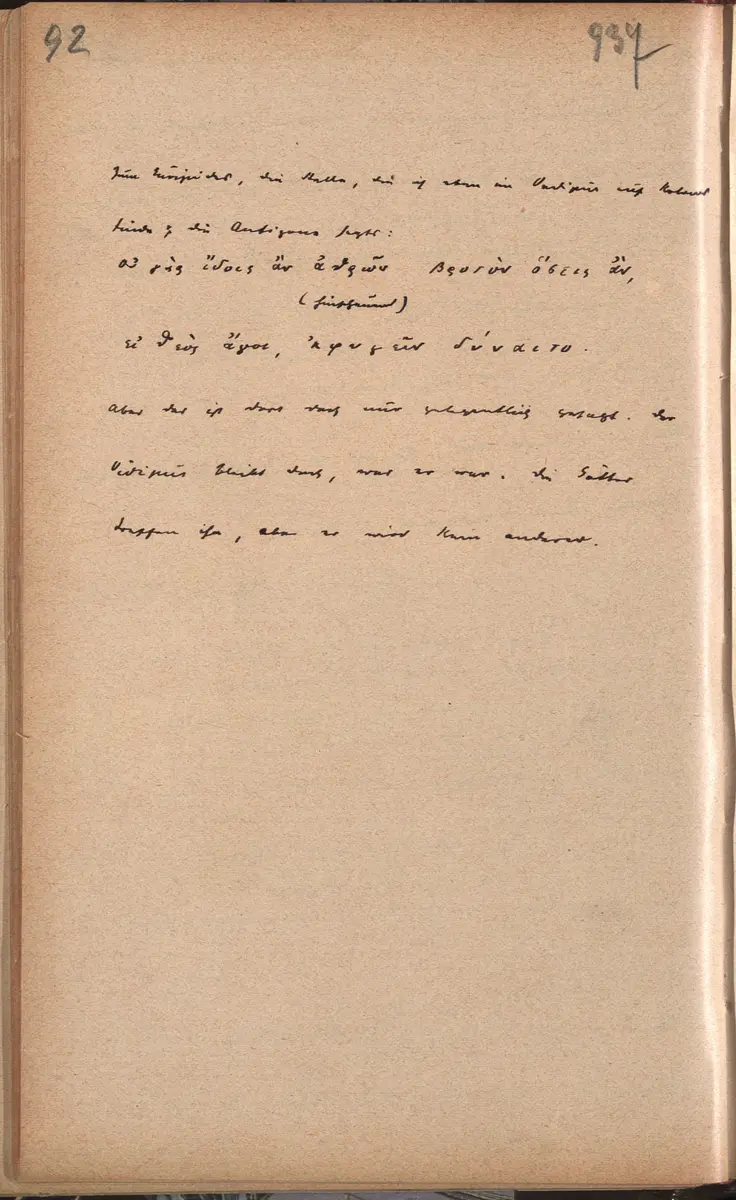 92 937
Zum Euripides, die Stelle, die ich eben im Oedipus auf Kolonos
finde & die Antigone sagt:
οὐ γὰρ ἴδοις ἂν ἀθρῶν βροτὸν ὅστις ἂν,
(hinschauend)
εἰ θεὸς ἄγοι, ἐκφυγεῖν δύναιτο.
Aber das ist dort doch nur gelegentlich gesagt. Der
Ödipus bleibt doch, was er war. Die Götter
treffen ihn, aber er wird kein anderer.